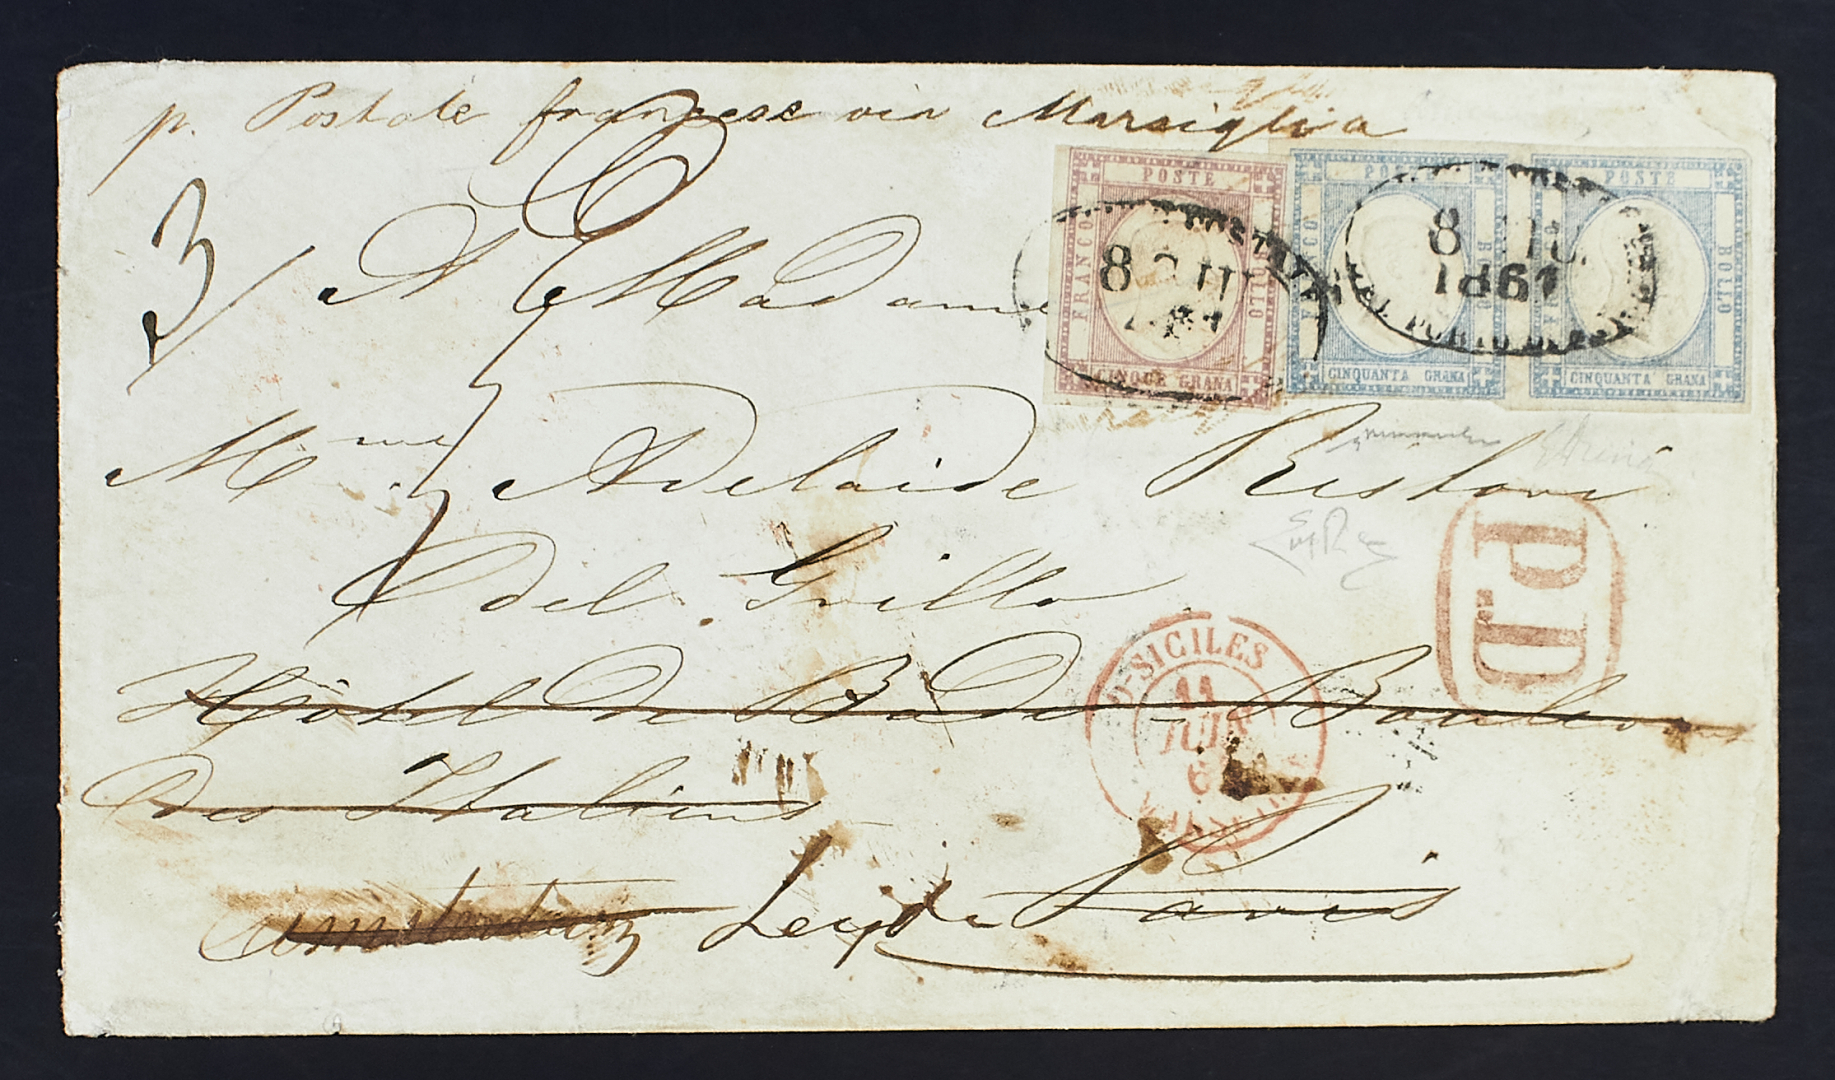 p. Postale francese via Marsiglia
3/
A Madame
Mme Adelaide Ristori
del Grillo
Hôtel de Bade – Boulevard
des Italiens
Amsterdam Leyde Paris
POSTE
FRANCO
BOLLO
CINQUE GRANA
8 GIU
POSTE
FRANCO
BOLLO
CINQUANTA GRANA
POSTE
BOLLO
CINQUANTA GRANA
8 GIU.
1861
P.D
D-SICILES
11
JUIN
61
MARSEILLE